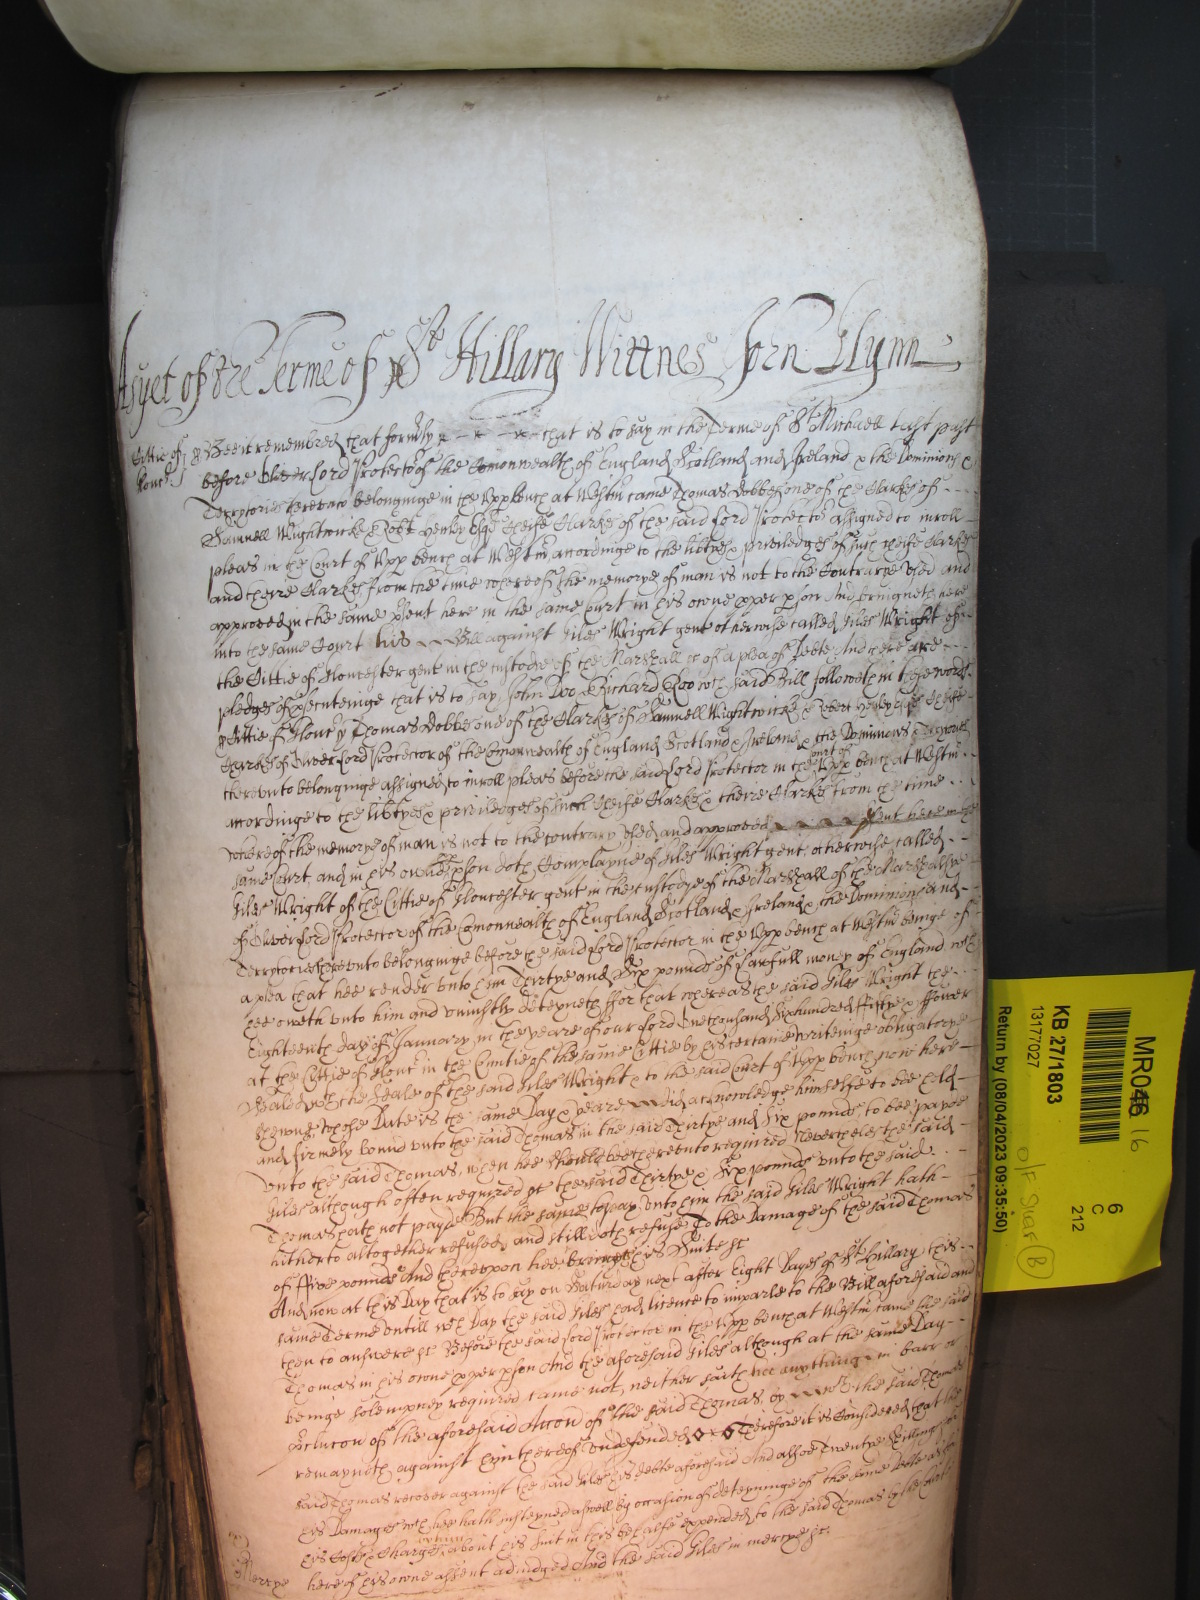 As yet of the Terme of St Hillary Wittnes John Glynn
Cittie of Glouc ss Bee it remembred that formrly that is to say in the Terme of St Michaell last past
before Oliver Lord Protector of the Comonwealth of England Scotland and Ireland & the Dominions &
Terrytories thereunto belonginge in the Upp bench at Westm came Thomas Dobbes one of the Clarkes of
Samuell Wightwicke & Robt Henley Esqs Cheife Clarkes of the said Lord Protector assigned to inroll
pleas in the Court of Upp bench at Westm accordinge to the libtyes & priviledges of such Cheife Clarkes
and theire Clarkes from the time whereof the memorye of man is not to the Contrarye used and
approved in the same psent here in the same Court in his owne pper pson And bringeth here
into the same Court his Bill against Giles Wright gent otherwise called Giles Wright of
the Cittie of Gloucester gent in the custodye of the Marshall &c of a plea of Debte And there are
pledges of psecuteinge that is to say John Doo & Richard Roo wch said Bill followeth in these words
ss Cittie of Glouc ss Thomas Dobbes one of the Clarkes of Samuell Wightwicke & Robert Henley Esqs Cheife
Clarkes of Oliver Lord Protector of the Comonwealth of England Scotland & Ireland & the Dominions & Terrytories
thereunto belonginge assigned to inroll pleas before the said Lord Protector in the Court of Upp bench at Westm
accordinge to the libtyes & priviledges of such Cheife Clarkes & theire Clarkes from the time
whereof the memorye of man is not to the contrary used and approved psent here in the
same Court and in his owne pson doth Complayne of Giles Wright gent otherwise called
Giles Wright of the Cittie of Gloucester gent in the custodye of the Marshall of the Marshalsye
of Oliver Lord Protector of the Comonwealth of England Scotland & Ireland & the Dominions and
Terrytories thereunto belonginge before the said Lord Protector in the Upp bench at Westm beinge of
a plea that hee render unto him Thirtye and Six pounds of lawfull money of England wch
hee oweth unto him and uniustly deteyneth ffor that whereas the said Giles Wright the
Eighteenth day of January in the yeare of our Lord One thousand Six hundred ffiftye & ffower
at the Cittie of Glouc in the Countie of the same Cittie by his certaine writeinge obligatorye
Sealed wth the Seale of the said Giles Wright & to the said Court of Upp bench now here
shewne whose Date is the same Day & yeare did acknowledge himselfe to bee held
and firmely bound unto the said Thomas in the said Thirtye and Six pounds to bee payde
unto the said Thomas when hee should bee thereunto required Neverthelesse the said
Giles although often required &c the said Thirtye & Six pounds unto the said
Thomas hath not payde But the same to pay unto him the said Giles Wright hath
hitherto altogether refused and still doth refuse To the Damage of the said Thomas
of ffive pounds And thereupon hee bringeth his Suite &c
And now at this Day that is to say on Saturday next after Eight Dayes of St Hillary this
same Terme untill wch Day the said Giles had licence to imparle to the Bill aforesaid and
then to answere &c Before the said Lord Protector in the Upp bench at Westm came the said
Thomas in his owne pper pson And the aforesaid Giles although at the same Day
beinge solempnely required came not neither saith hee anythinge in barr or
pclucon of the aforesaid Accon of the said Thomas by wch the said Thomas
remayneth against him thereof undefended Therefore it is Considered that the
said Thomas recover against the said Giles his debte aforesaid And allsoe Twentye Shillings for
his Damages wch hee hath susteyned aswell by occasion of deteyninge of the same Debte as for
his Costs & Charges about his Suit in this behalfe expended to the said Thomas by the Court
Mercye here of his owne assent adiudged And the said Giles in mercye &c
MR046 16
KB 27/1803
13177027
Return by (08/04/2023 09:35:50)
6
C
212
B